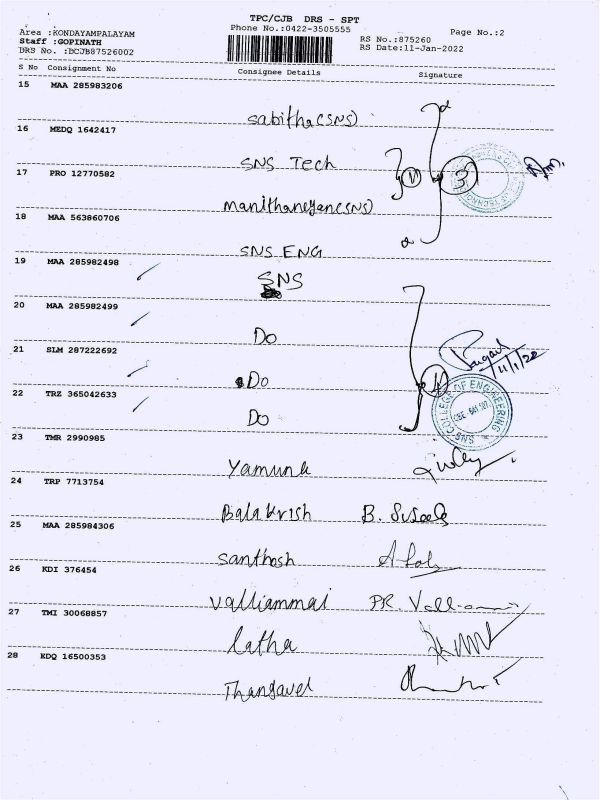 TPC/CJB DRS - SPT
Area :KONDAYAMPALAYAM Phone No.:0422-3505555 Page No.:2
Staff :GOPINATH RS No.:875260
DRS No. :BCJB87526002 RS Date:11-Jan-2022
S No Consignment No Consignee Details Signature
15 MAA 285983206
sabitha(SNS)
16 MEDQ 1642417
SNS Tech
17 PRO 12770582
3
manithaneyane(SNS)
18 MAA 563860706
SNS ENG
19 MAA 285982498
SNS
20 MAA 285982499
Do
21 SLM 287222692
11/1/22
Do
4
22 TRZ 365042633
SNS COLLEGE OF ENGINEERING
Do
23 TMR 2990985
Yamuna
24 TRP 7713754
Balakrish B. Suseela
25 MAA 285984306
santhosh
26 KDI 376454
valliammai PR. Valliammai
27 TMI 30068857
latha
28 KDQ 16500353
Thangavel